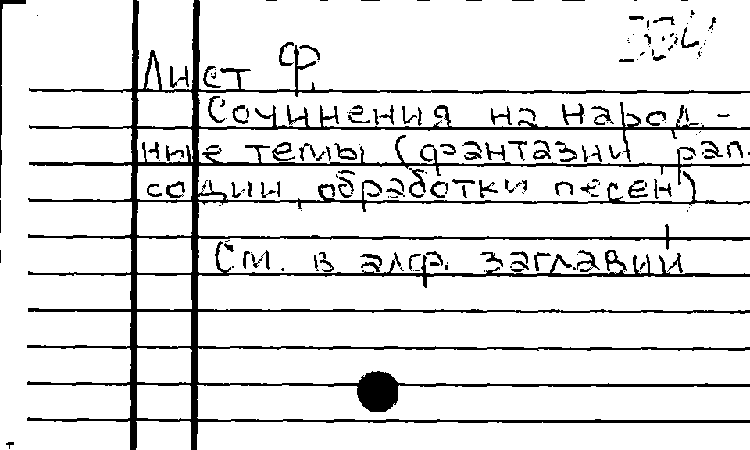 334
Лист Ф.
Сочинения на народ-
ные темы (фантазии, рап-
содии, обработки песен)
См. в алф. заглавий